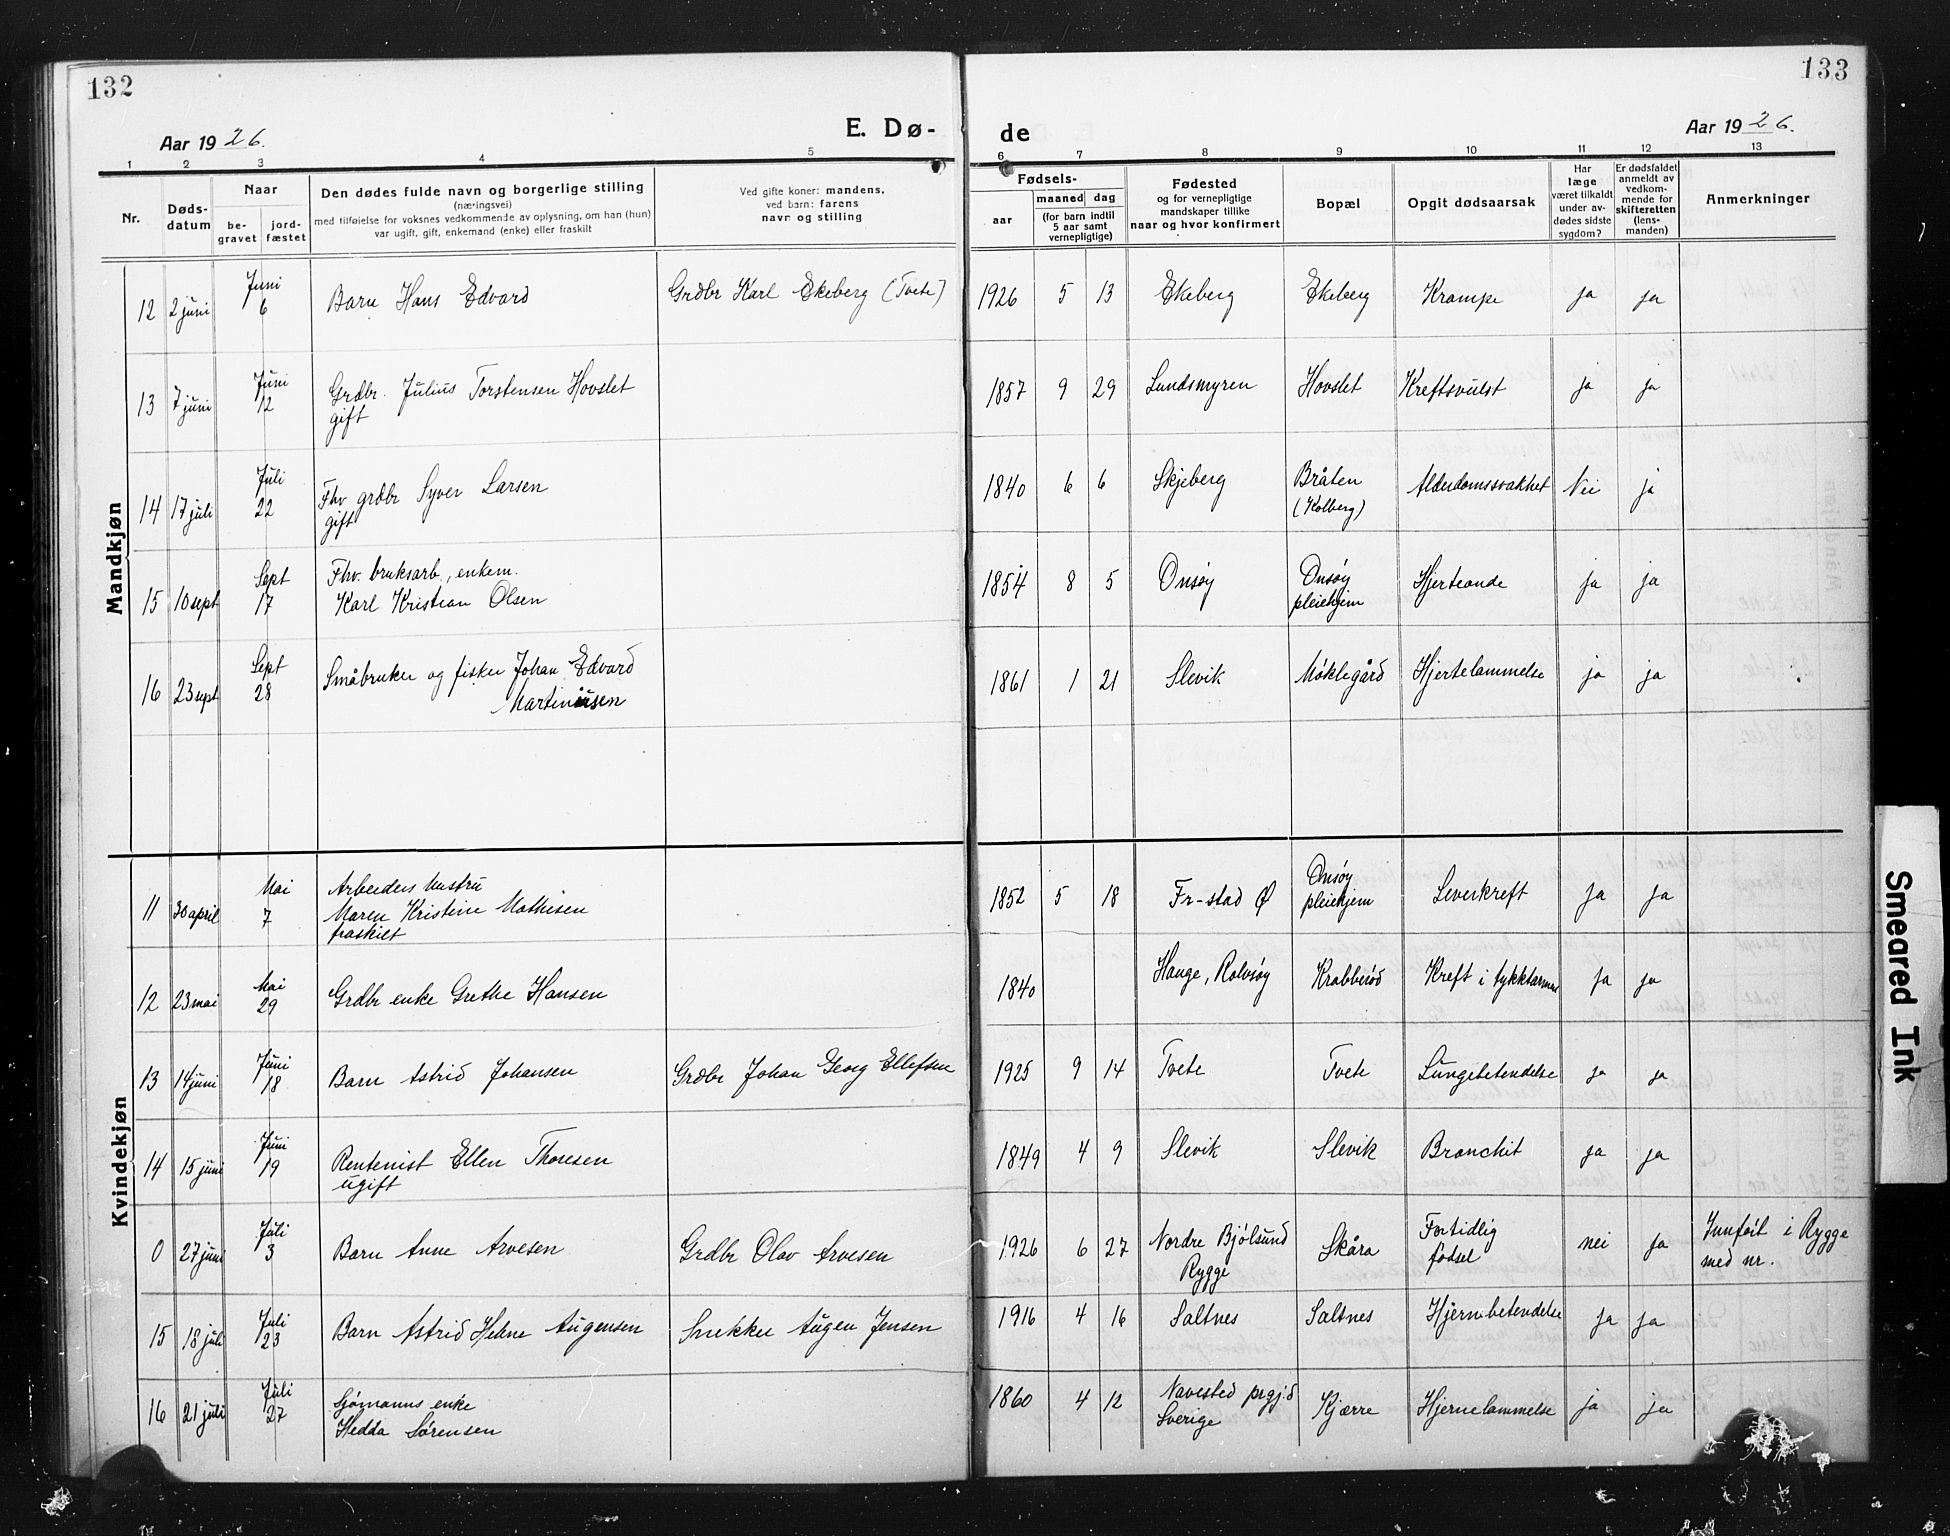 132
Aar 1926.
E. Dø-
1 2 3 4 5
Nr.
Døds-
datum
Naar
be-
gravet
jord-
fæstet
Den dødes fulde navn og borgerlige stilling
(næringsvei)
med tilføielse for voksnes vedkommende av oplysning, om han (hun)
var ugift, gift, enkemand (enke) eller fraskilt
Ved gifte koner: mandens,
ved barn: farens
navn og stilling
133
de
Aar 1926.
6 7 8 9 10 11 12 13
Fødsels-
aar
maaned dag
(for barn indtil
5 aar samt
vernepligtige)
Fødested
og for vernepligtige
mandskaper tillike
naar og hvor konfirmert
Bopæl
Opgit dødsaarsak
Har
læge
været tilkaldt
under av-
dødes sidste
sygdom?
Er dødsfaldet
anmeldt av
vedkom-
mende for
skifteretten
(lens-
manden)
Anmerkninger
Mandkjøn
12 2 juni Juni 6 Barn Hans Edvard Grdbr Karl Ekeberg (Tvete) 1926 5 13 Ekeberg Ekeberg Krampe ja ja
13 7 juni Juni 12 Grdbr. Julius Torstensen Hovslet
gift 1857 9 29 Lundsmyren Hovslet Kreftsvulst ja ja
14 17 juli Juli 22 Fhv grdbr Syver Larsen
gift 1840 6 6 Skjeberg Bråten
(Kolberg) Alderdomssvakhet Nei ja
15 10 sept Sept 17 Fhv. bruksarb., enkem.
Karl Kristian Olsen 1854 8 5 Onsøy Onsøy
pleiehjem Hjerteonde ja ja
16 23 sept Sept 28 Småbruker og fisker Johan Edvard
Martiniusen 1861 1 21 Slevik Møklegård Hjertelammelse ja ja
Kvindekjøn
11 30 april Mai 7 Arbeiders hustru
Maren Kristine Mathisen
fraskilt 1852 5 18 Fr-stad Ø Onsøy
pleiehjem Leverkreft ja ja
12 23 mai Mai 29 Grdbr enke Grethe Hansen 1840 Hauge, Rolvsøy Krabberød Kreft i tykktarmen ja ja
13 14 juni Juni 18 Barn Astrid Johansen Grdbr Johan Georg Ellefsen 1925 9 14 Tvete Tvete Lungebetendelse ja ja
14 15 juni Juni 19 Rentenist Ellen Thoresen
ugift 1849 4 9 Slevik Slevik Bronchit ja ja
0 27 juni Juli 3 Barn Anne Arvesen Grdbr Olav Arvesen 1926 6 27 Nordre Bjølsund
Rygge Skåra Fortidlig
fødsel nei ja Innført i Rygge
med nr.
15 18 juli Juli 23 Barn Astrid Helene Augensen Snekker Augen Jensen 1916 4 16 Saltnes Saltnes Hjernebetendelse ja ja
16 21 juli Juli 27 Sjømanns enke
Hedda Sørensen 1860 4 12 Navestad prgjd
Sverige Kjærre Hjernelammelse ja ja
Smeared Ink